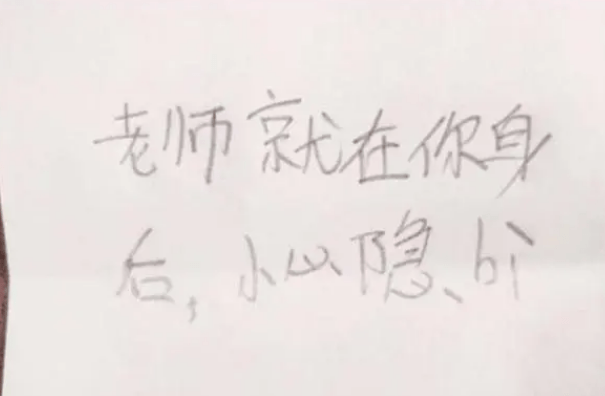 老师就在你身
后，小心隐bì